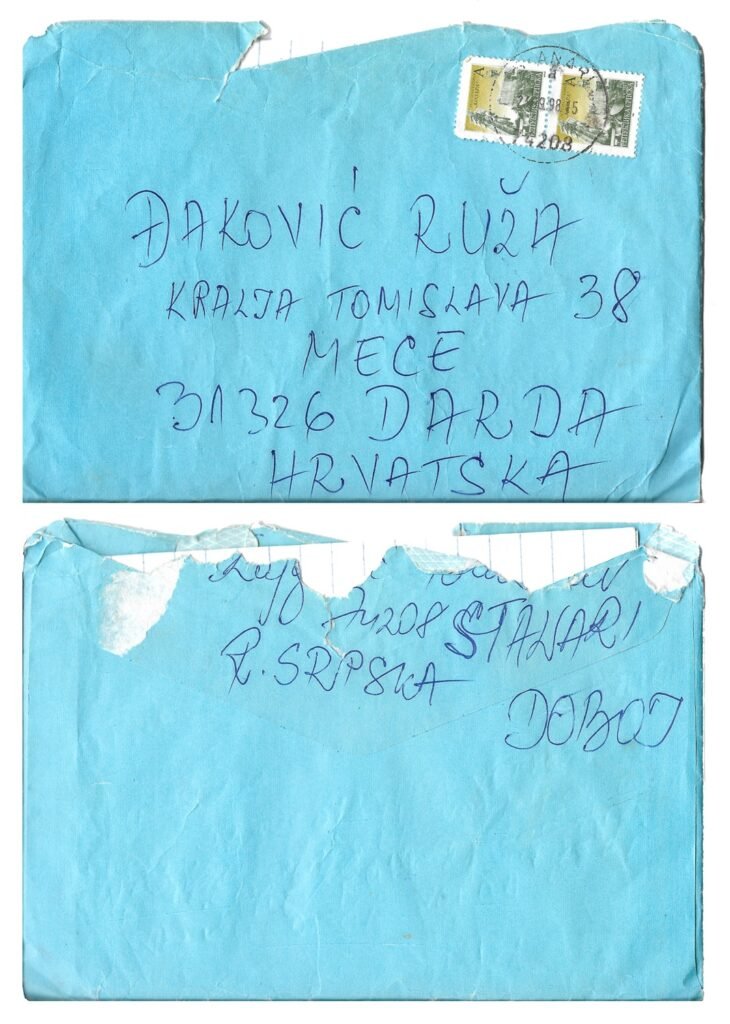 24.9.98 5
74208
ĐAKOVIĆ RUŽA
KRALJA TOMISLAVA 38
MECE
31326 DARDA
HRVATSKA
74208 STANARI
R. SRPSKA
DOBOJ